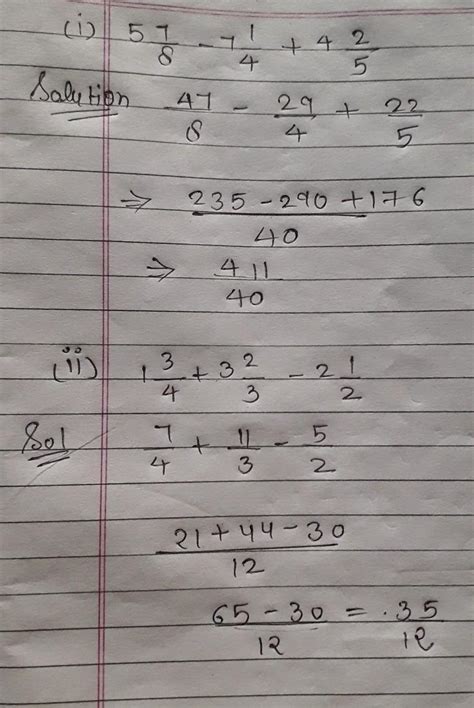 (i) 5 7/8 - 7 1/4 + 4 2/5
Solution 47/8 - 29/4 + 22/5
⇒ 235 - 290 + 176/40
⇒ 411/40
(ii) 1 3/4 + 3 2/3 - 2 1/2
Sol 7/4 + 11/3 - 5/2
21 + 44 - 30/12
65 - 30/12 = .35/12